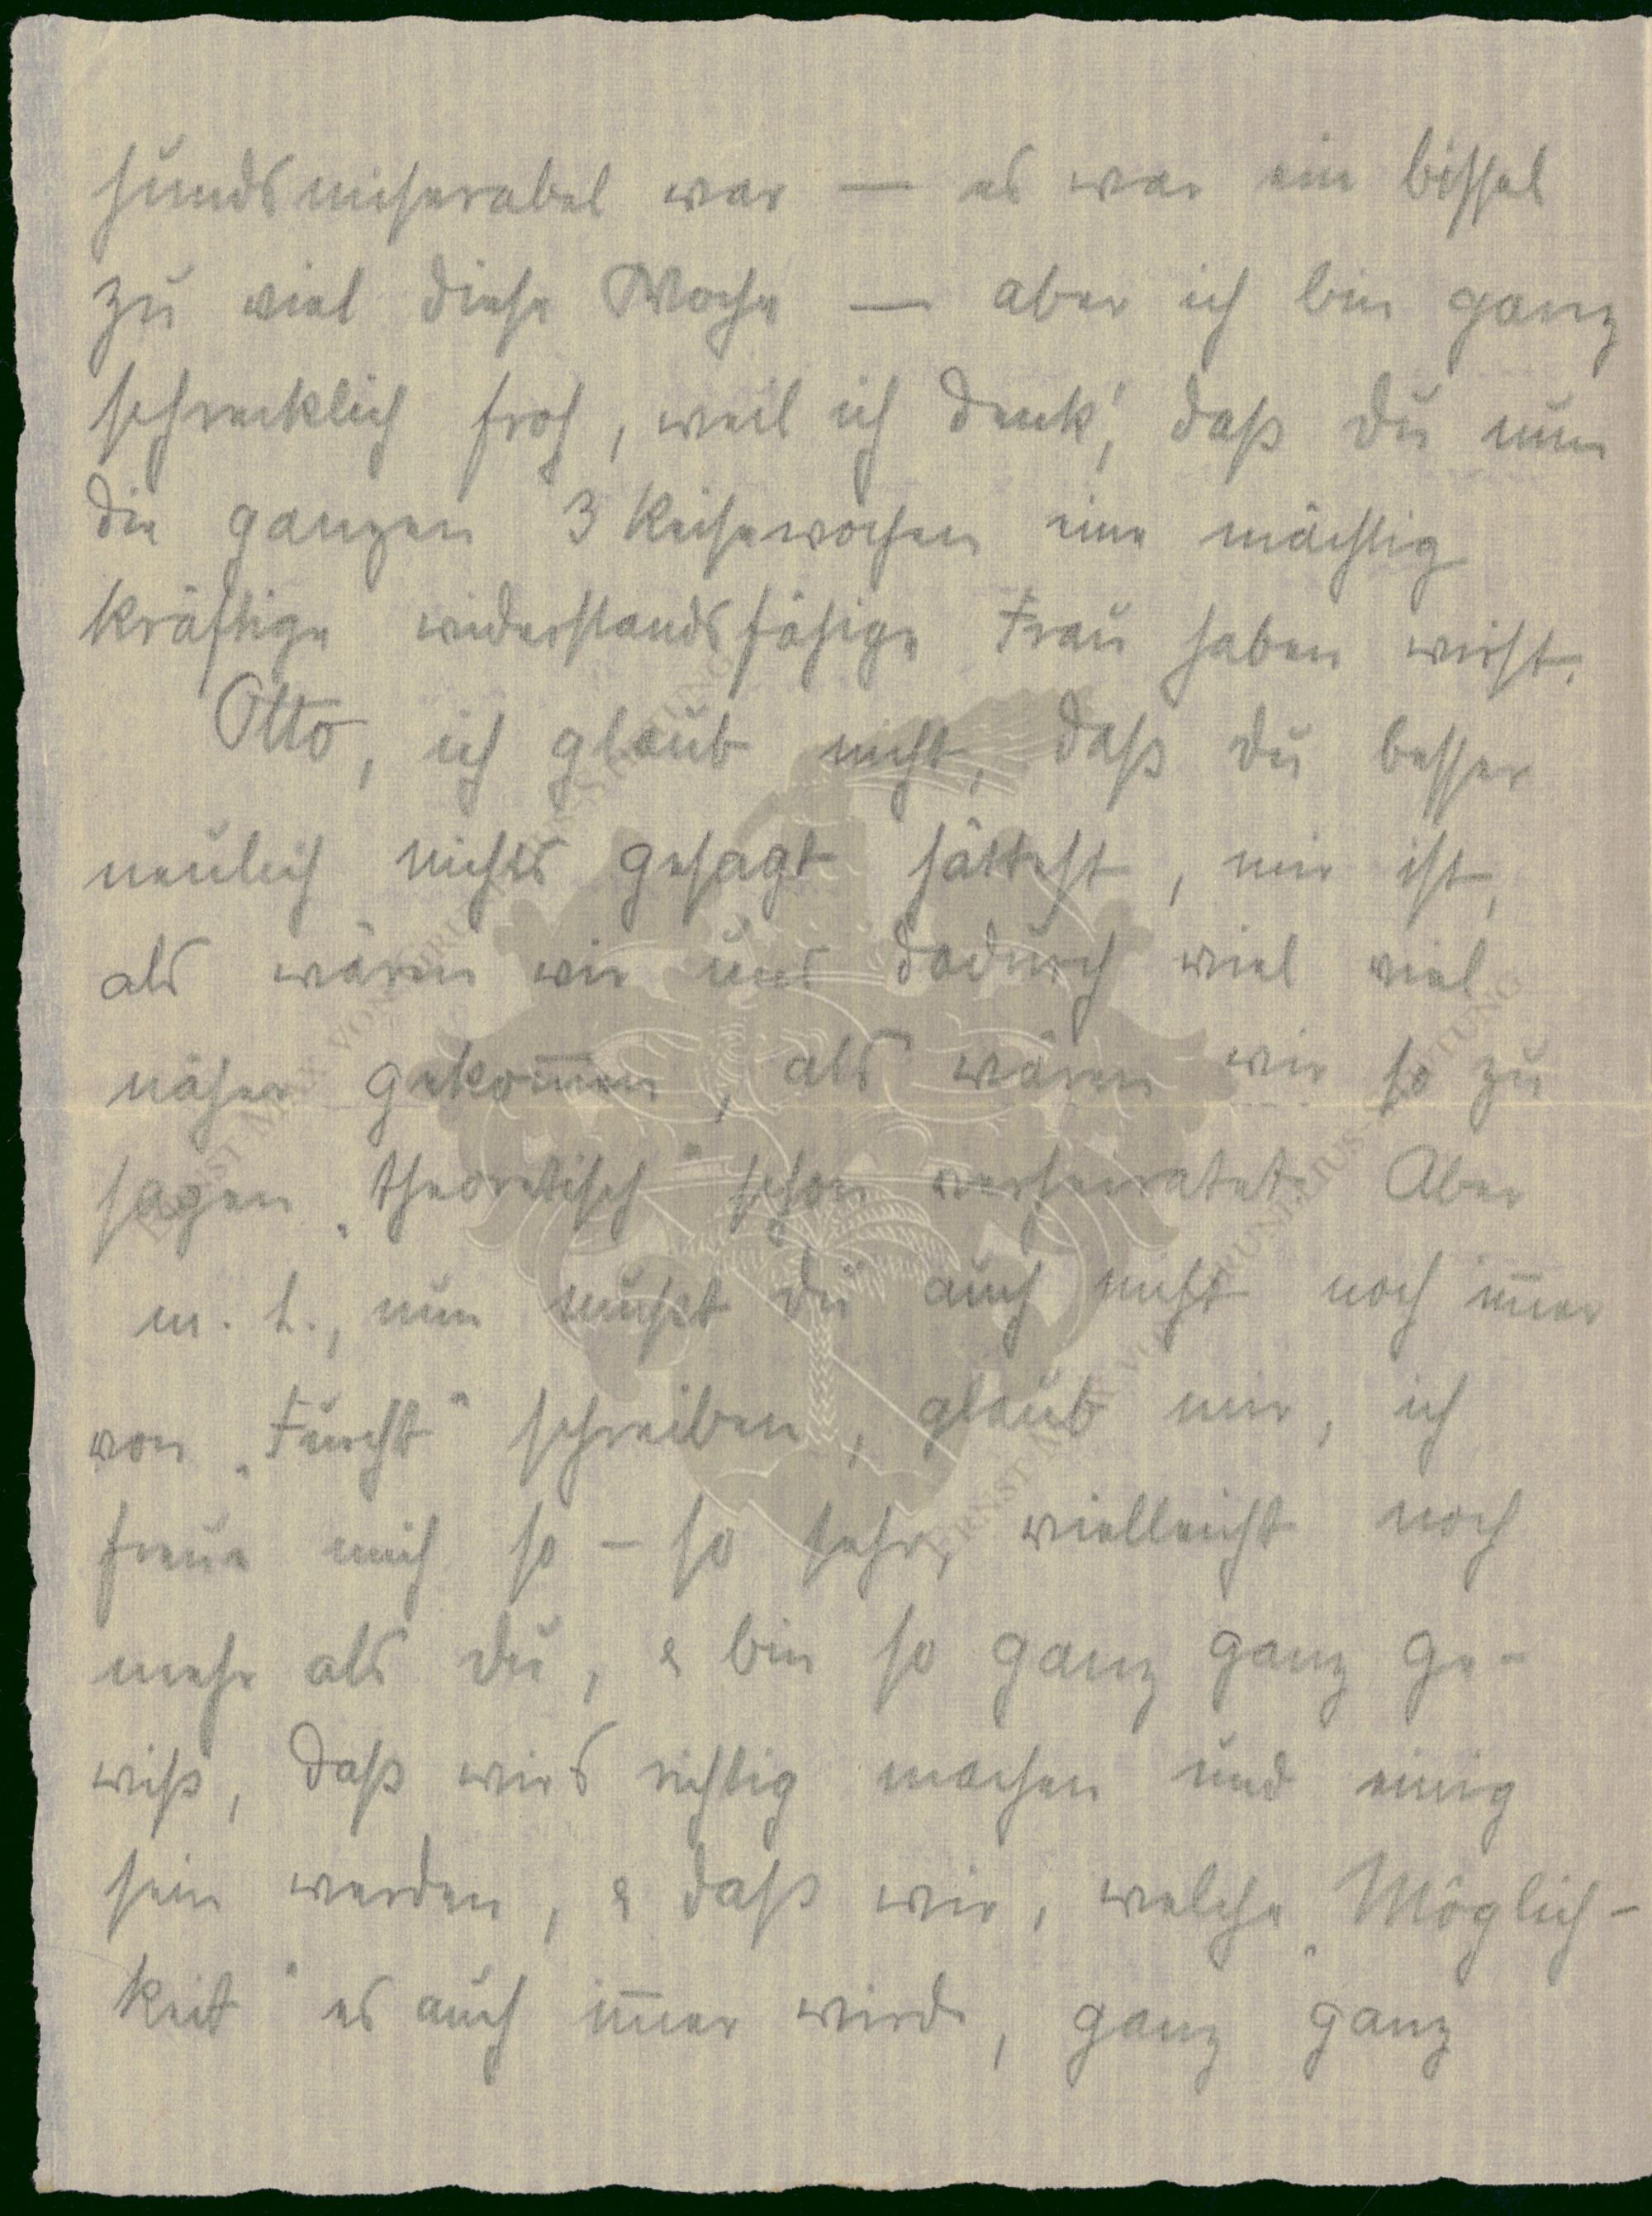 hundsmiserabel war — es war ein bissel
zu viel diese Woche — aber ich bin ganz
schrecklich froh, weil ich denk', daß du nun
die ganzen 3 Reisewochen eine mächtig
kräftige widerstandsfähige Frau haben wirst.
Otto, ich glaub nicht, daß du besser
neulich nichts gesagt hättest, mir ist,
als wären wir uns dadurch viel viel
näher gekom̅en, als wären wir so zu
sagen „theoretisch" schon verheiratet. Aber
m. l., nun mußt du auch nicht noch im̅er
von „Furcht" schreiben, glaub mir, ich
freue mich so – so sehr, vielleicht noch
mehr als du, & bin so ganz ganz ge-
wiß, daß wirs richtig machen und einig
sein werden, & daß wir, welche „Möglich-
keit" es auch im̅er wird, ganz ganz
ERNST MAX VON GRUNELIUS-STIFTUNG
ERNST MAX VON GRUNELIUS-STIFTUNG